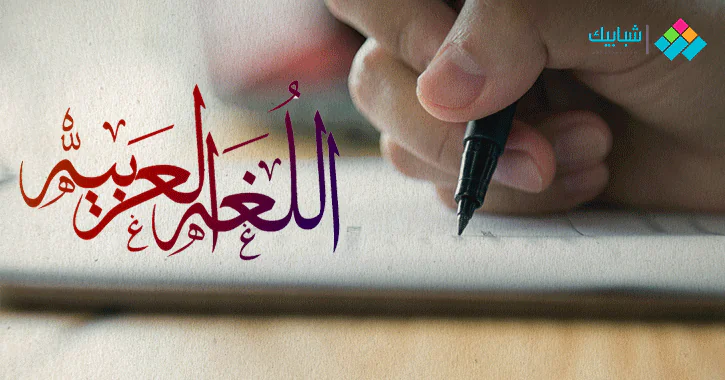 شبابيك
اللُغه العربيه